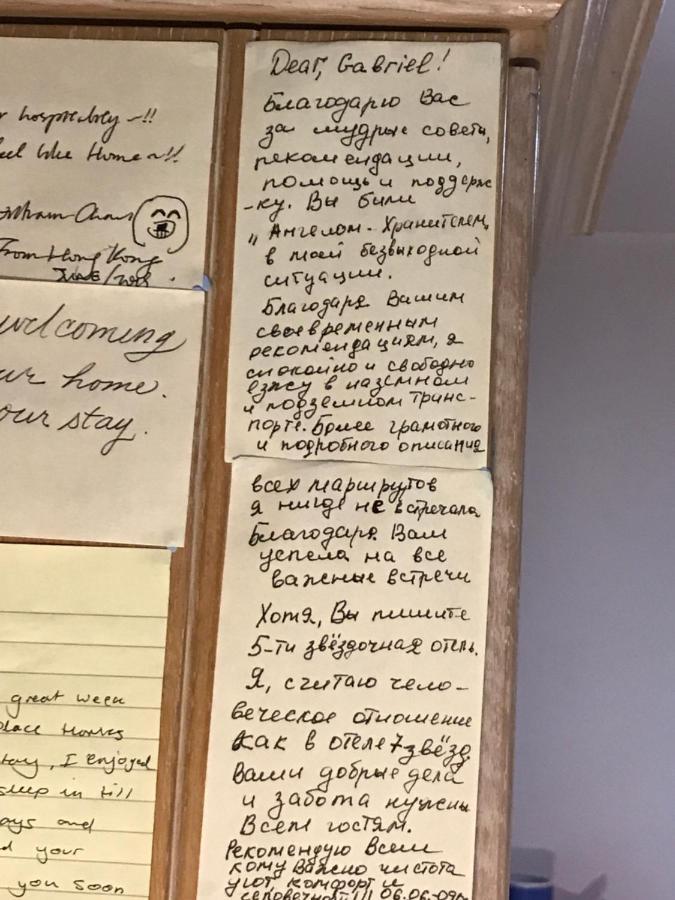 Dear, Gabriel!
Благодарю Вас
за мудрые советы,
рекомендации,
помощь и поддерж
-ку. Вы были
„Ангелом-Хранителем„
в моей безвыходной
ситуации.
Благодаря Вашим
своевременным
рекомендациям, я
спокойно и свободно
езжу в наземном
и подземном транс-
порте. Более грамотного
и подробного описания
всех маршрутов
я нигде не встречала
Благодаря Вам
успела на все
важные встречи
Хотя, Вы пишите
5-ти звёздочная отель.
Я, считаю чело-
веческое отношение
как в отеле 7 звёзд
Ваши добрые дела
и забота нужны
Всем гостям.
Рекомендую Всем
кому Важно чистота
уют, комфорт и
06.06-09
hospitality ~!!
like Home ~!!
From Hong Kong
welcoming
home.
our stay.
great week
place thanks
stay, I enjoyed
sleep in till
days and
your
you soon